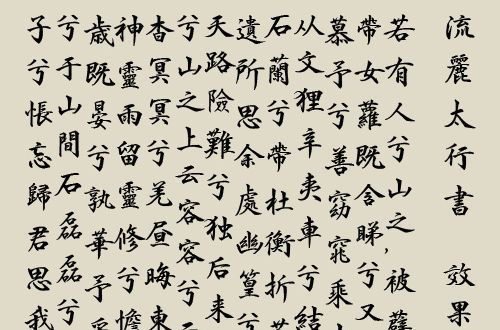 流麗太行書 效果
若有人兮山之,被薜
帶女蘿既含睇兮又
慕予兮善窈窕乘
从文狸辛夷車兮結
石蘭兮帶杜衡折
遺所思余處幽篁兮
天路險難兮独后来
兮山之上云容容兮
杳冥冥兮羌昼晦東
神靈雨留靈修兮憺
歲既晏兮孰華予
兮于山間石磊磊兮
子兮悵忘歸君思我